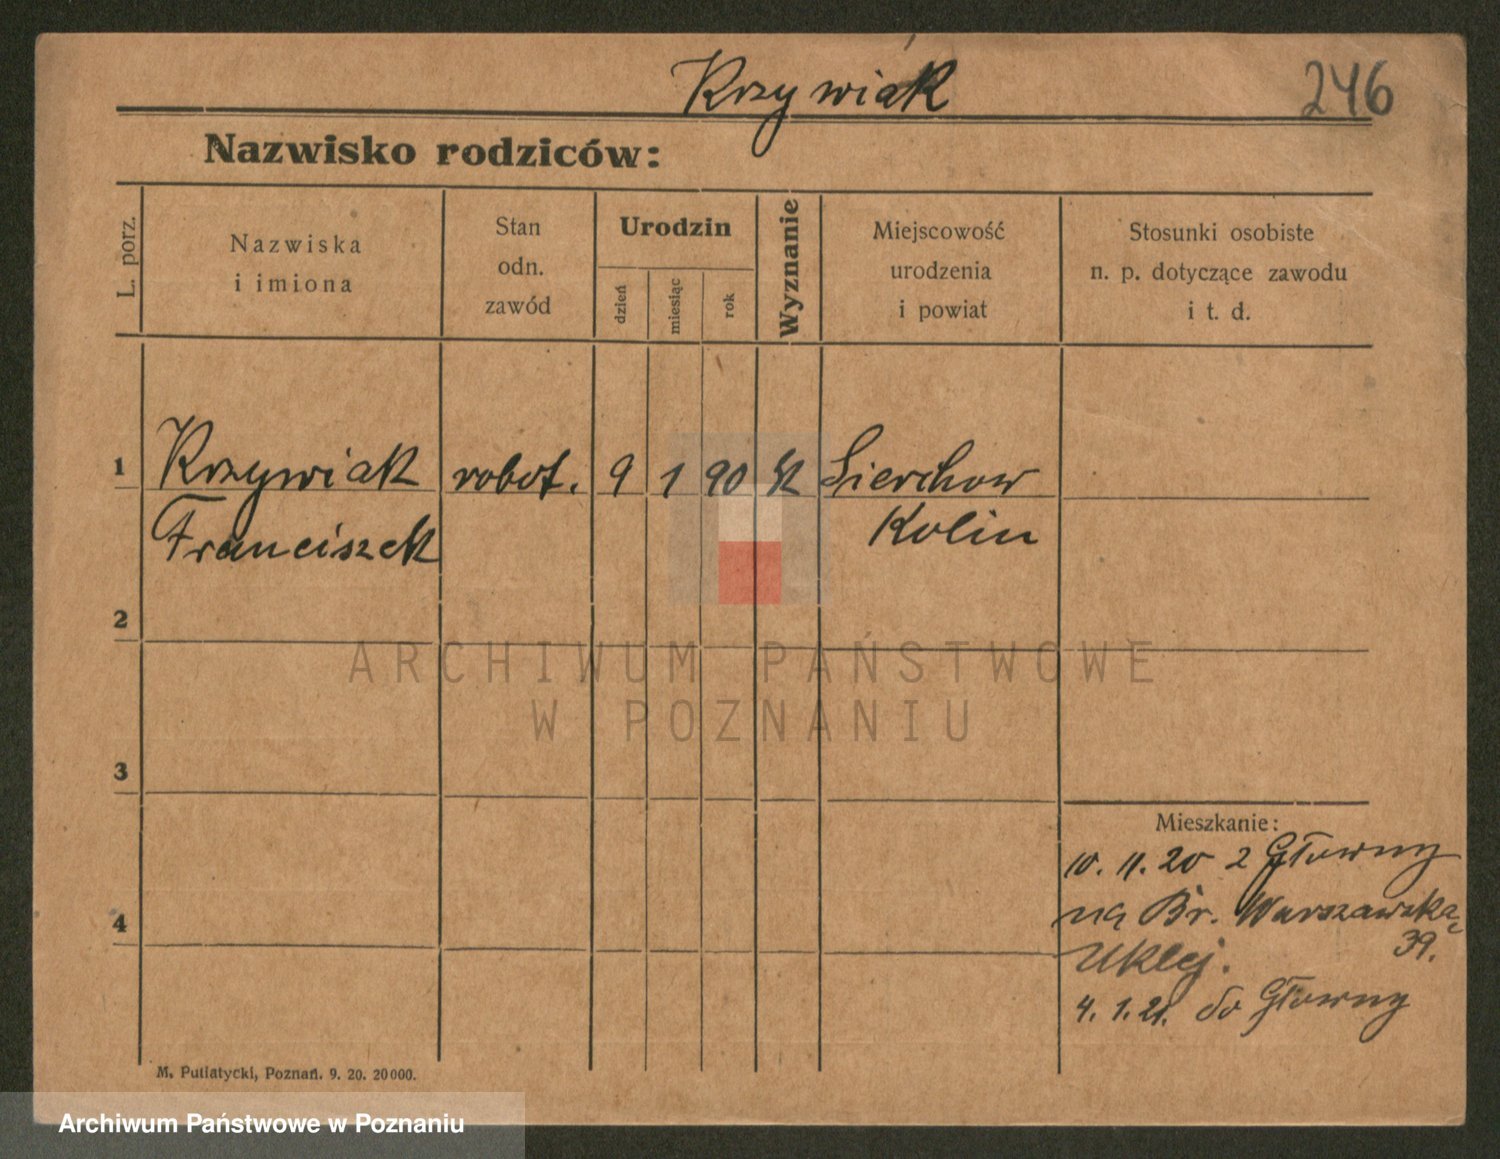 Krzywiak
246
Nazwisko rodziców:
L. porz.
Nazwiska
i imiona
Stan
odn.
zawód
Urodzin
dzień
miesiąc
rok
Wyznanie
Miejscowość
urodzenia
i powiat
Stosunki osobiste
n. p. dotyczące zawodu
i t. d.
1 Krzywiak robot. 9 1 90 k Sierchow
Franciszek Kolin
2
3
4
Mieszkanie:
10. 11. 20 z Głowny
na Br. Warszawska
39.
Uklej.
4. 1. 21. do Głowny
M. Putiatycki, Poznań. 9. 20. 20000.
ARCHIWUM PAŃSTWOWE
W POZNANIU
Archiwum Państwowe w Poznaniu